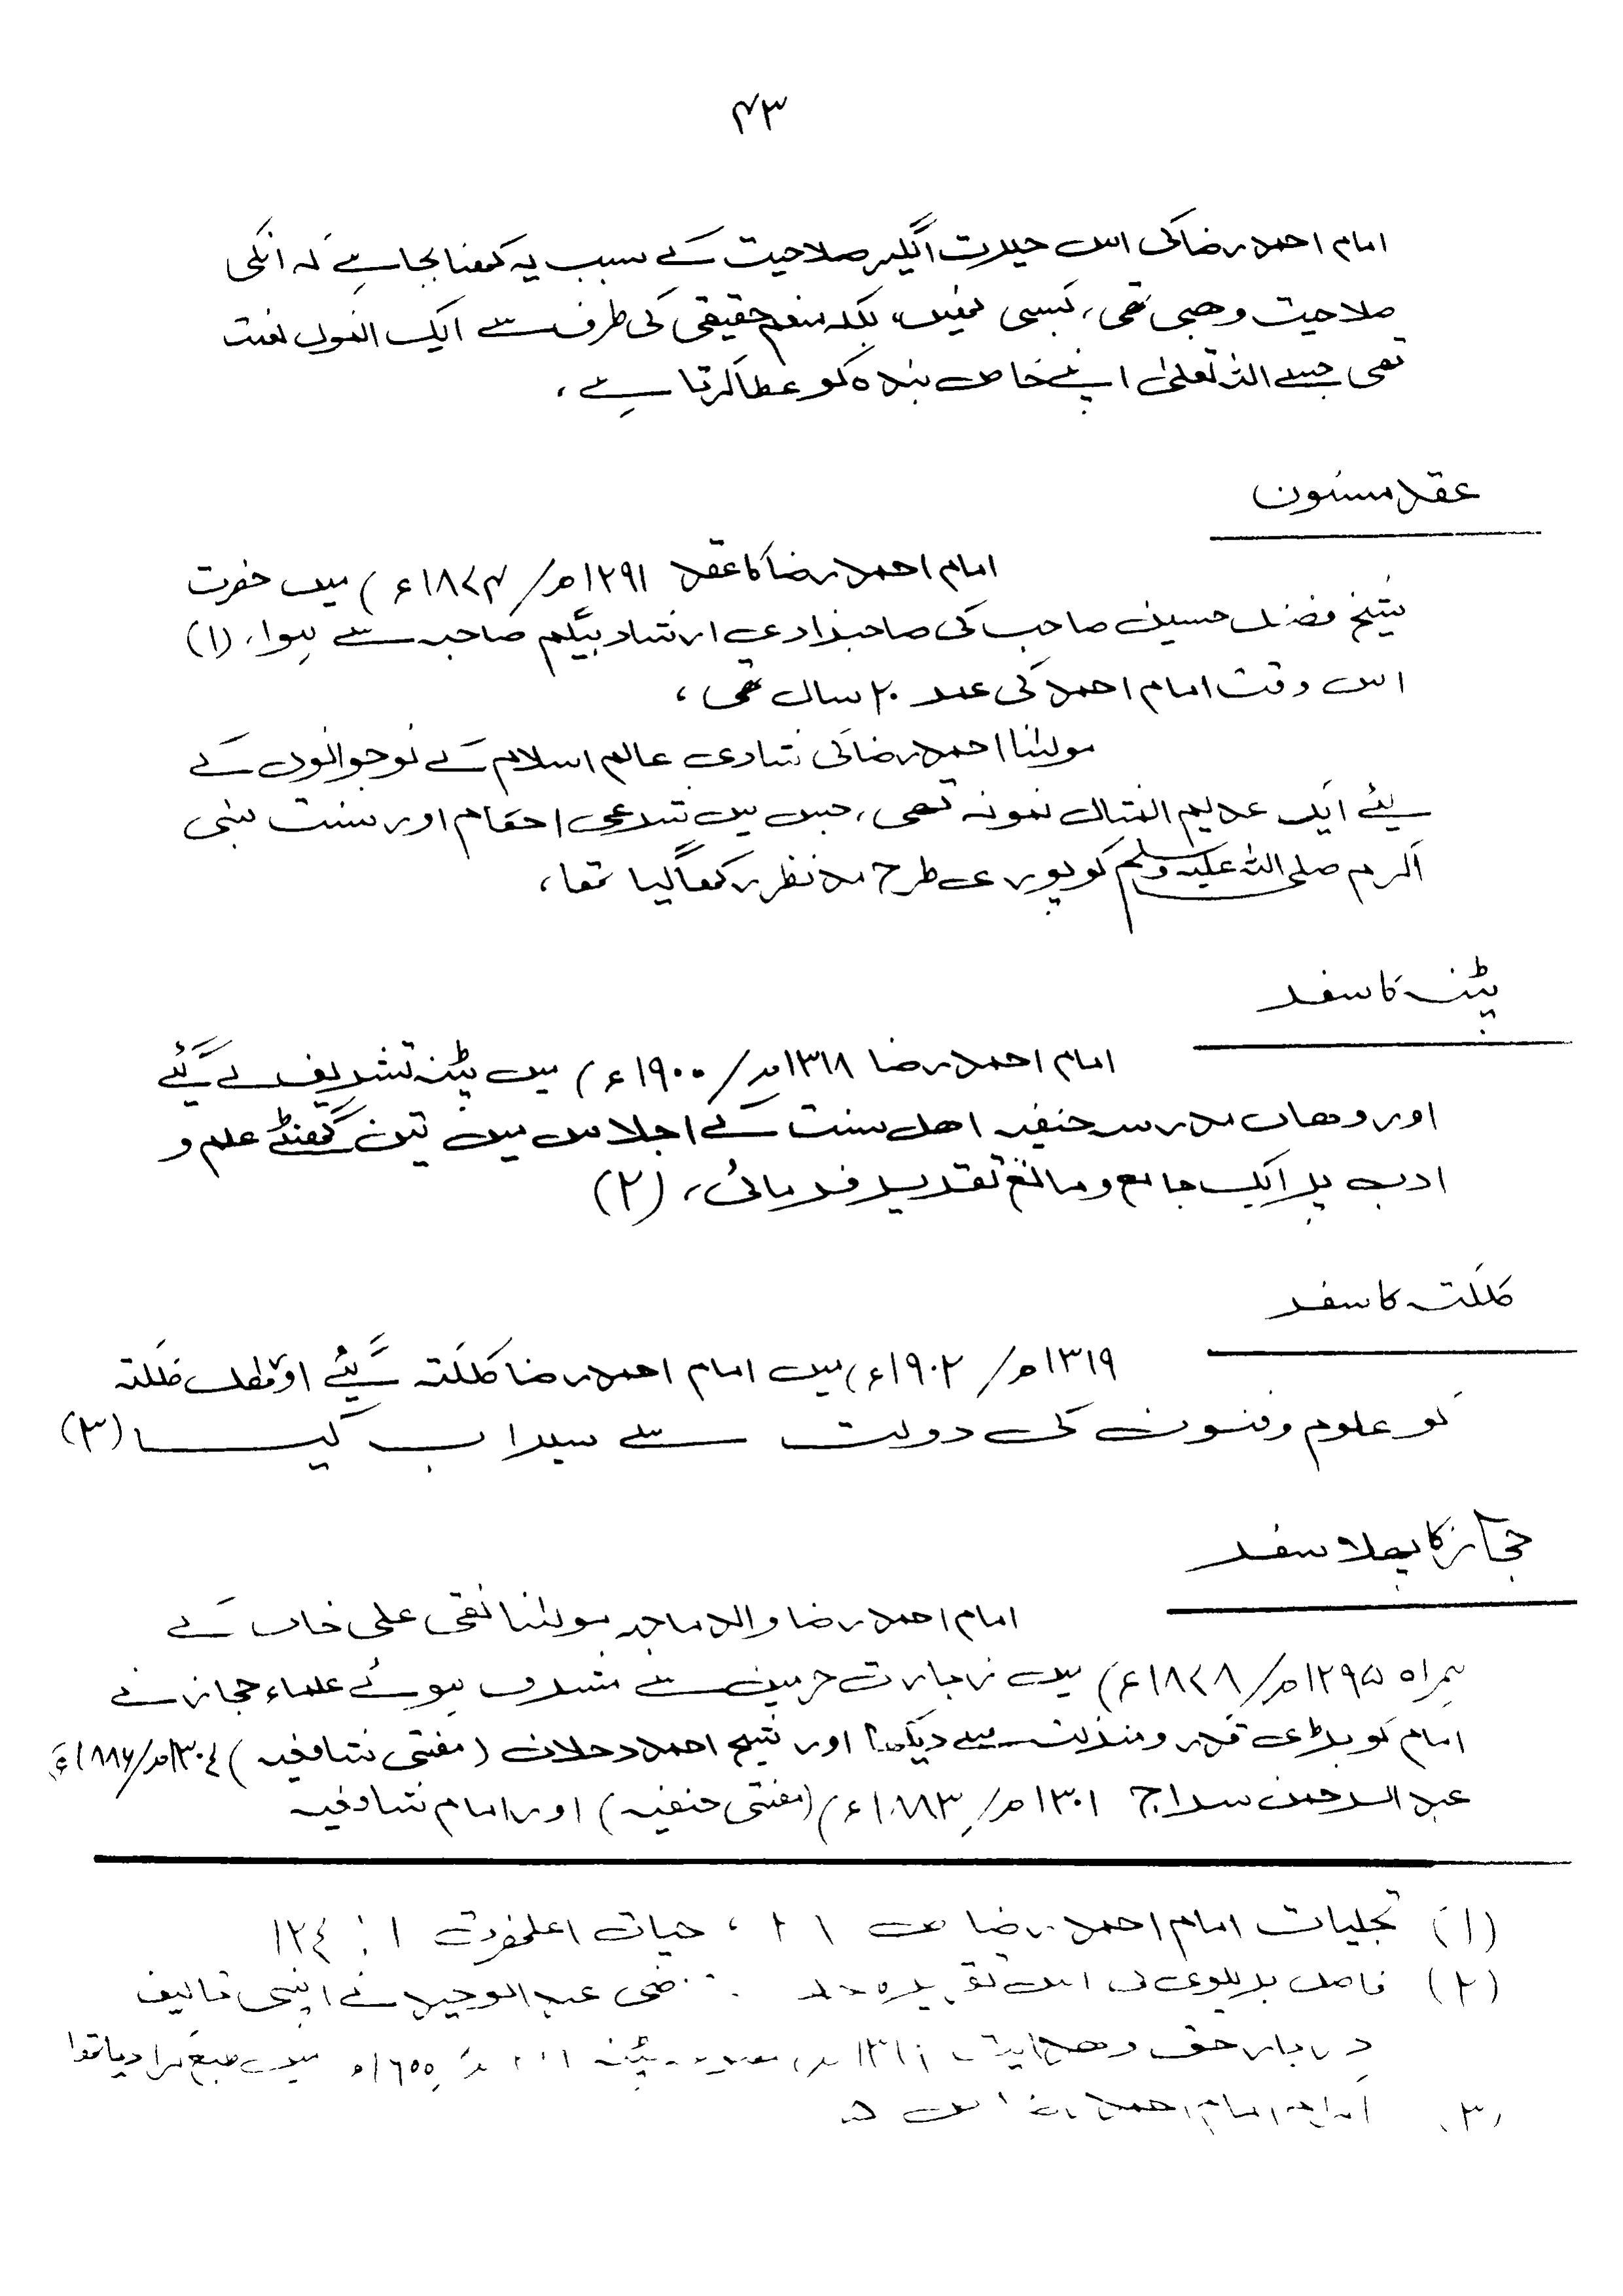 ۴۳
امام احمد رضا کی اس حیرت انگیز صلاحیت کے سبب یہ کھنا بجا ہے کہ انکی
صلاحیت وھبی تھی، کسبی نھیں، بلکہ منعم حقیقی کی طرف سے ایک انمول نعمت
تھی جسے اللہ تعلیٰ اپنے خاص بندہ کو عطا کرتا ہے،
عقد مسنون
امام احمد رضا کا عقد ۱۲۹۱ھ/ ۱۸۷۴ء) میں حضرت
شیخ فضل حسین صاحب کی صاحبزادی ارشاد بیگم صاحبہ سے ہوا، (۱)
اس وقت امام احمد کی عمر ۲۰ سال تھی،
مولٰنا احمد رضا کی شادی عالم اسلام کے نوجوانوں کے
لیئے ایک عدیم المثال نمونہ تھی، جس میں شرعی احقام اور سنت نبی
اکرم صلی اللہ علیہ وسلم کو پوری طرح مد نظر رکھا گیا تھا،
پٹنہ کا سفر
امام احمد رضا ۱۳۱۸ھ/ ۱۹۰۰ء) میں پٹنہ تشریف لے گئے
اور وھاں مدرسہ حنفیہ اھل سنت کے اجلاس میں تین گھنٹے علم و
ادب پر ایک جامع و مانع تقریر فرمائی، (۲)
کلکتہ کا سفر
۱۳۱۹ھ/ ۱۹۰۲ء) میں امام احمد رضا کلکتہ گئے اور کلکتہ
کو علوم و فنون کی دولت سے سیراب کیا (۳)
حجاز کا پھلا سفر
امام احمد رضا والد ماجد مولٰنا نقی علی خاں کے
ہمراہ ۱۲۹۵ھ/ ۱۸۷۸ء) میں زیارت حرمین سے مشرف ہوئے علماء حجاز نے
امام کو بڑی قدر و منزلت سے دیکھا اور شیخ احمد دحلان (مفتی شافعیہ) ۱۳۰٤ھ/ ۱۸۸۶ء)
عبد الرحمن سراج ۱۳۰۱ھ/ ۱۸۸۳ء) (مفتی حنفیہ) اور امام شافعیہ
(۱) تجلیات امام احمد رضا ص ۲۱، حیات اعلحضرت ۱: ۱۲٤
(۲) فاضل بریلوی کی اس تقریر عبد الوحید نے اپنی تالیف
دربار حق و ھدایت پٹنہ میں طبع کرا دیا تھا
(۳) امام احمد رضا ص